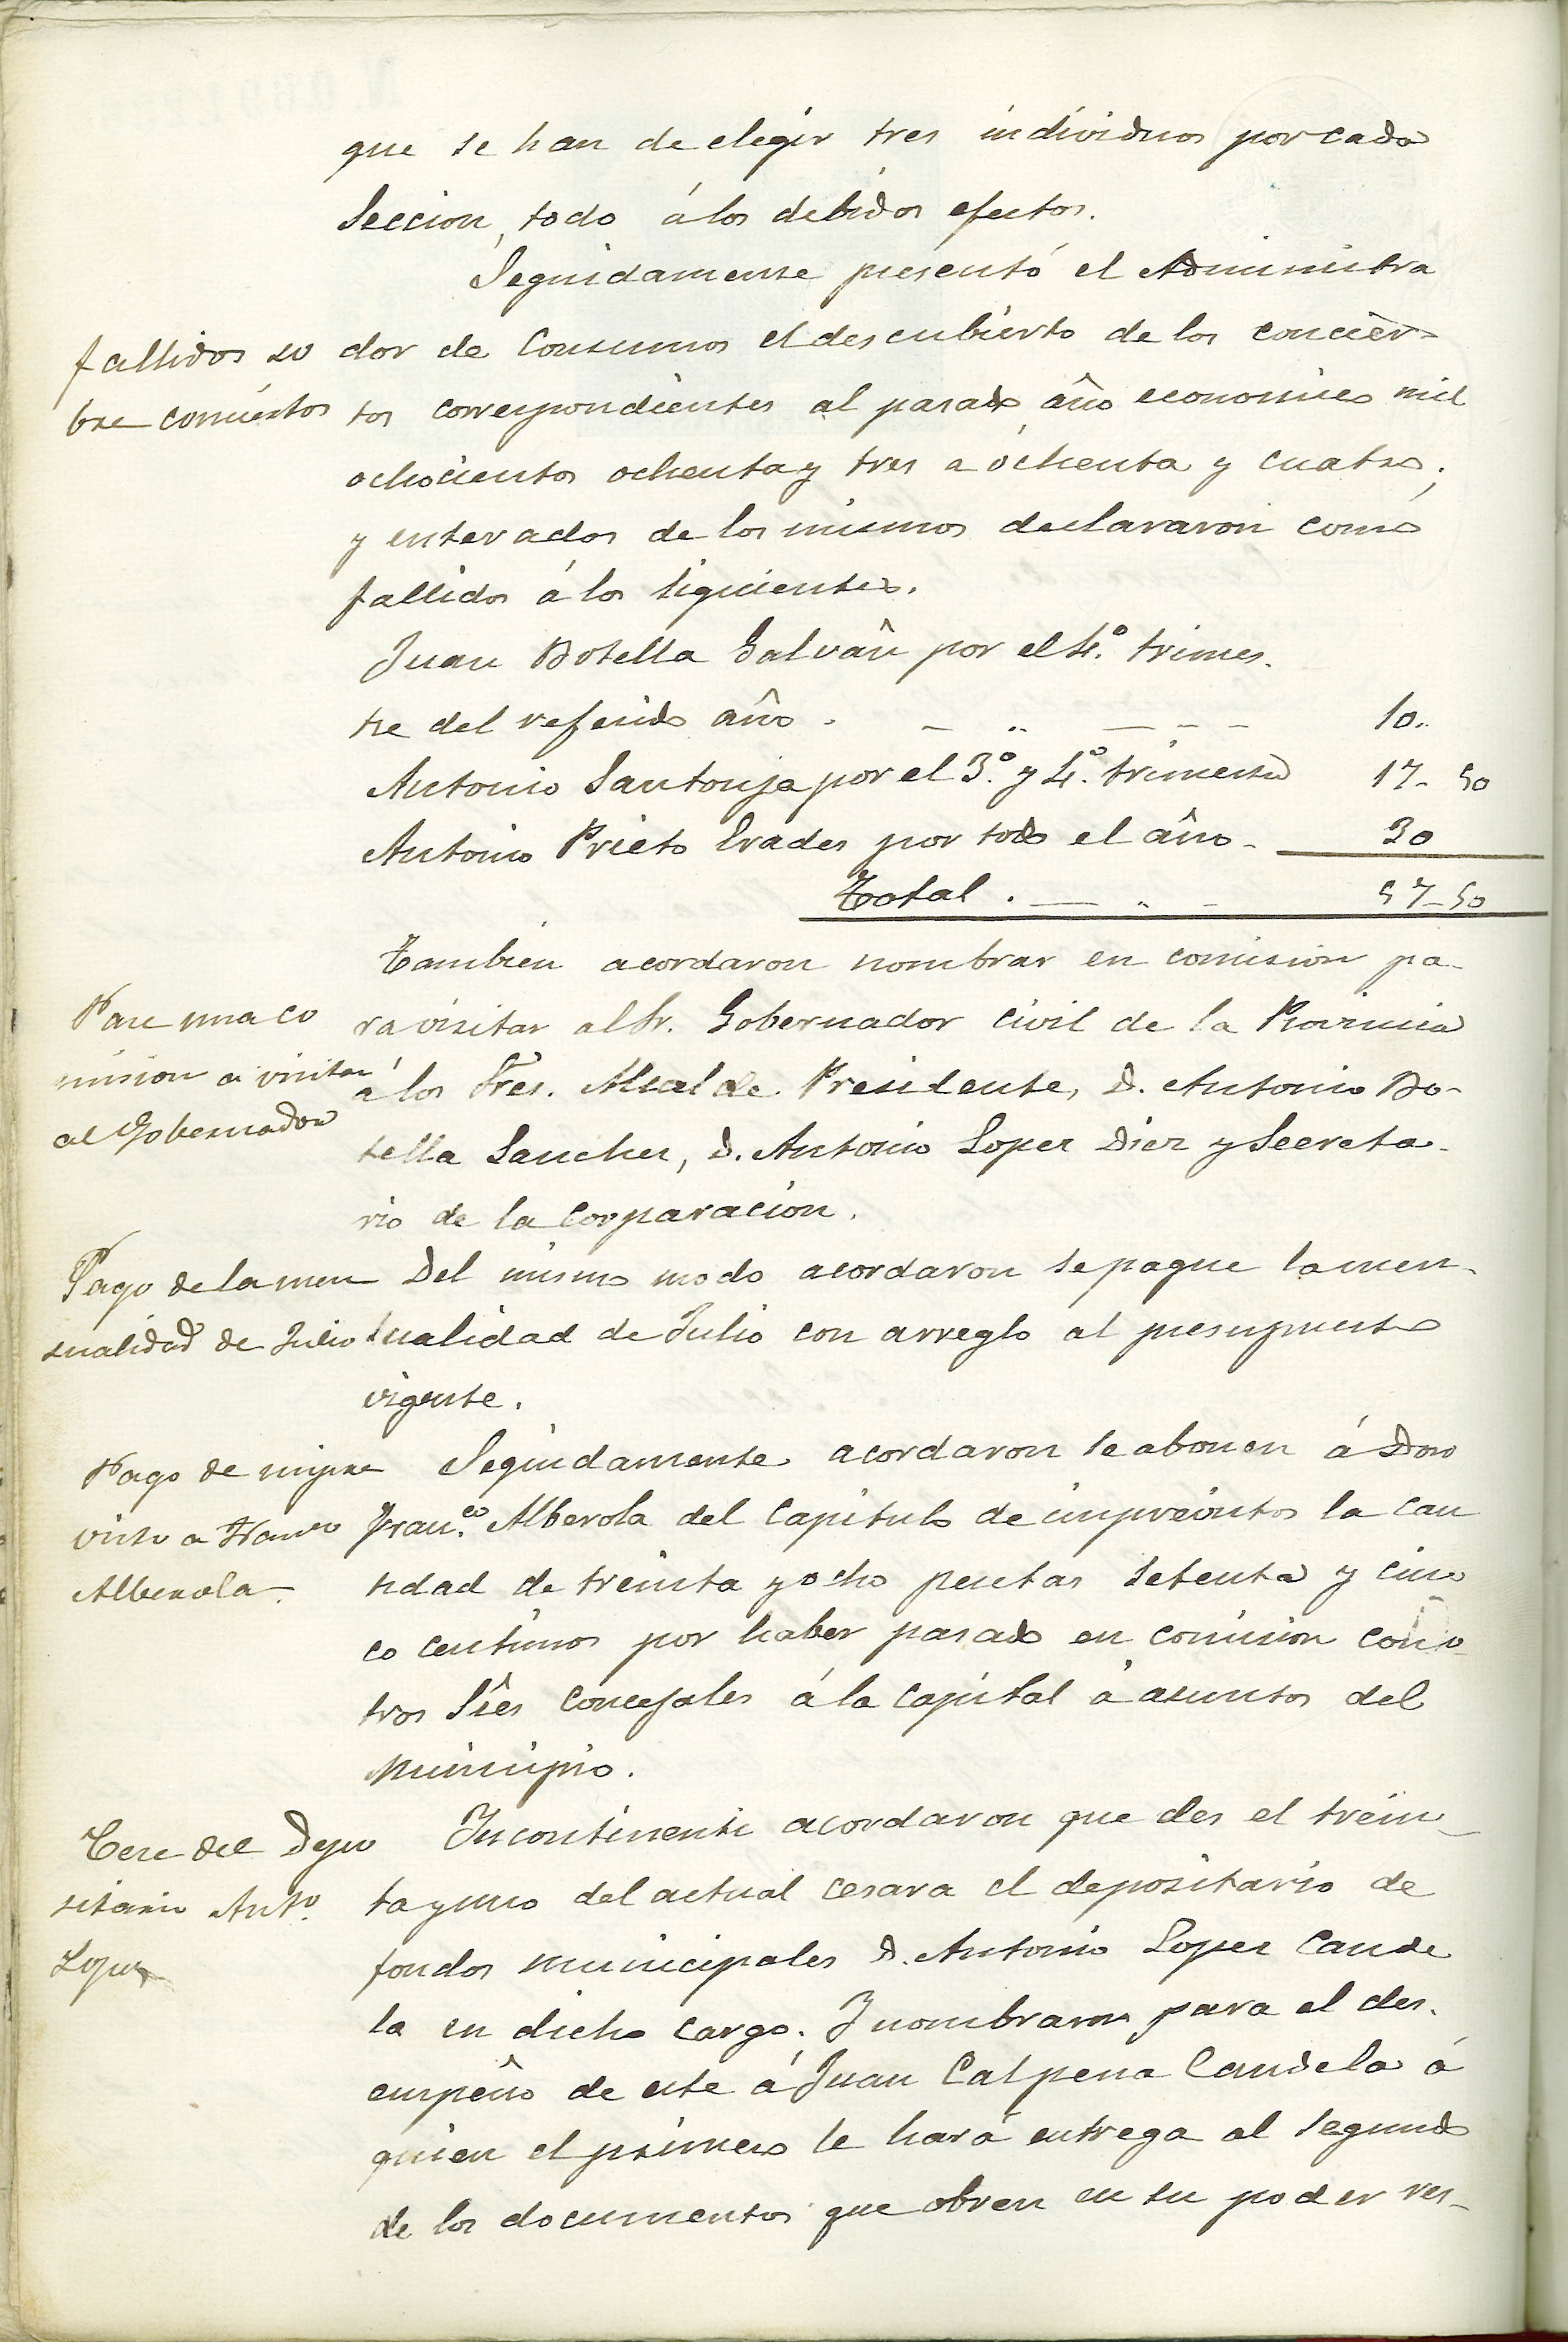 que se han de elegir tres individuos por cada
Seccion, todo á los debidos efectos.
Seguidamente presentó el Administra
fallidos so
bre conciertos
dor de Consumos el descubierto de los concier-
tos correspondientes al pasado año economico mil
ochocientos ochenta y tres a ochenta y cuatro;
y enterados de los mismos declararon como
fallidos á los siguientes.
Juan Botella Galván por el 4.º trimes-
tre del referido año . — .. — — — 10..
Antonio Santonja por el 3.º y 4.º trimestre 17- 50
Antonio Prieto Erades por todo el año - 30
Total . — .. - 57-50
Tambien acordaron nombrar en comision pa-
Pase una co
mision a visitar
al Gobernador
ra visitar al Sr. Gobernador civil de la Provincia
á los Sres. Alcalde Presidente, D. Antonio Bo-
tella Sanchez, D. Antonio Lopez Diez y Secreta-
rio de la Corparacion.
Pago de la men
sualidad de Julio
Del mismo modo acordaron se pague la men-
sualidad de Julio con arreglo al presupuesto
vigente.
Pago de impre
visto a Franco
Alberola-
Seguidamente acordaron se abonen á Don
Fran.co Alberola del Capitulo de imprevistos la can
tidad de treinta y ocho pesetas setenta y cin-
co centimos por haber pasado en comision con o-
tros Sres Concejales á la Capital á asuntos del
Municipio.
Cese del Depo
sitario Anto.
Lopez
Incontinenti acordaron que des el trein-
ta y uno del actual cesara el depositario de
fondos municipales D. Antonio Lopez Cande
la en dicho cargo. Y nombraron para el des-
empeño de este á Juan Calpena Candela á
quien el primero le hará entrega al segundo
de los documentos que obren en su poder res-